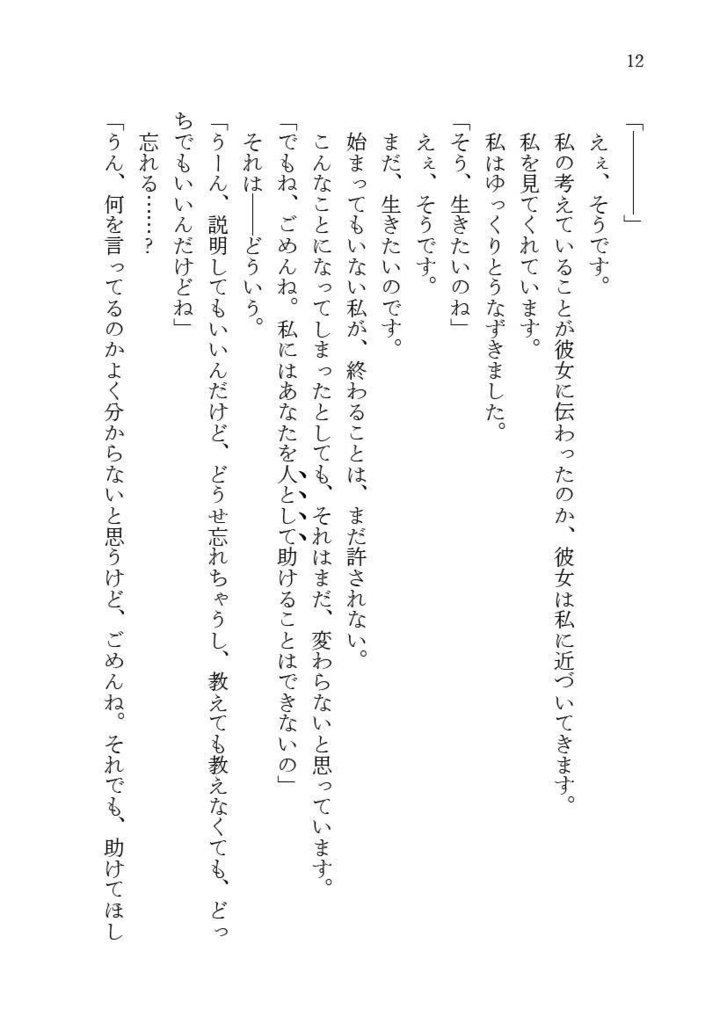 12
「――――」
えぇ、そうです。
私の考えていることが彼女に伝わったのか、彼女は私に近づいてきます。
私を見てくれています。
私はゆっくりとうなずきました。
「そう、生きたいのね」
えぇ、そうです。
まだ、生きたいのです。
始まってもいない私が、終わることは、まだ許されない。
こんなことになってしまったとしても、それはまだ、変わらないと思っています。
「でもね、ごめんね。私にはあなたを人として助けることはできないの」
それは――どういう。
「うーん、説明してもいいんだけど、どうせ忘れちゃうし、教えても教えなくても、どっ
ちでもいいんだけどね」
忘れる……?
「うん、何を言ってるのかよく分からないと思うけど、ごめんね。それでも、助けてほし